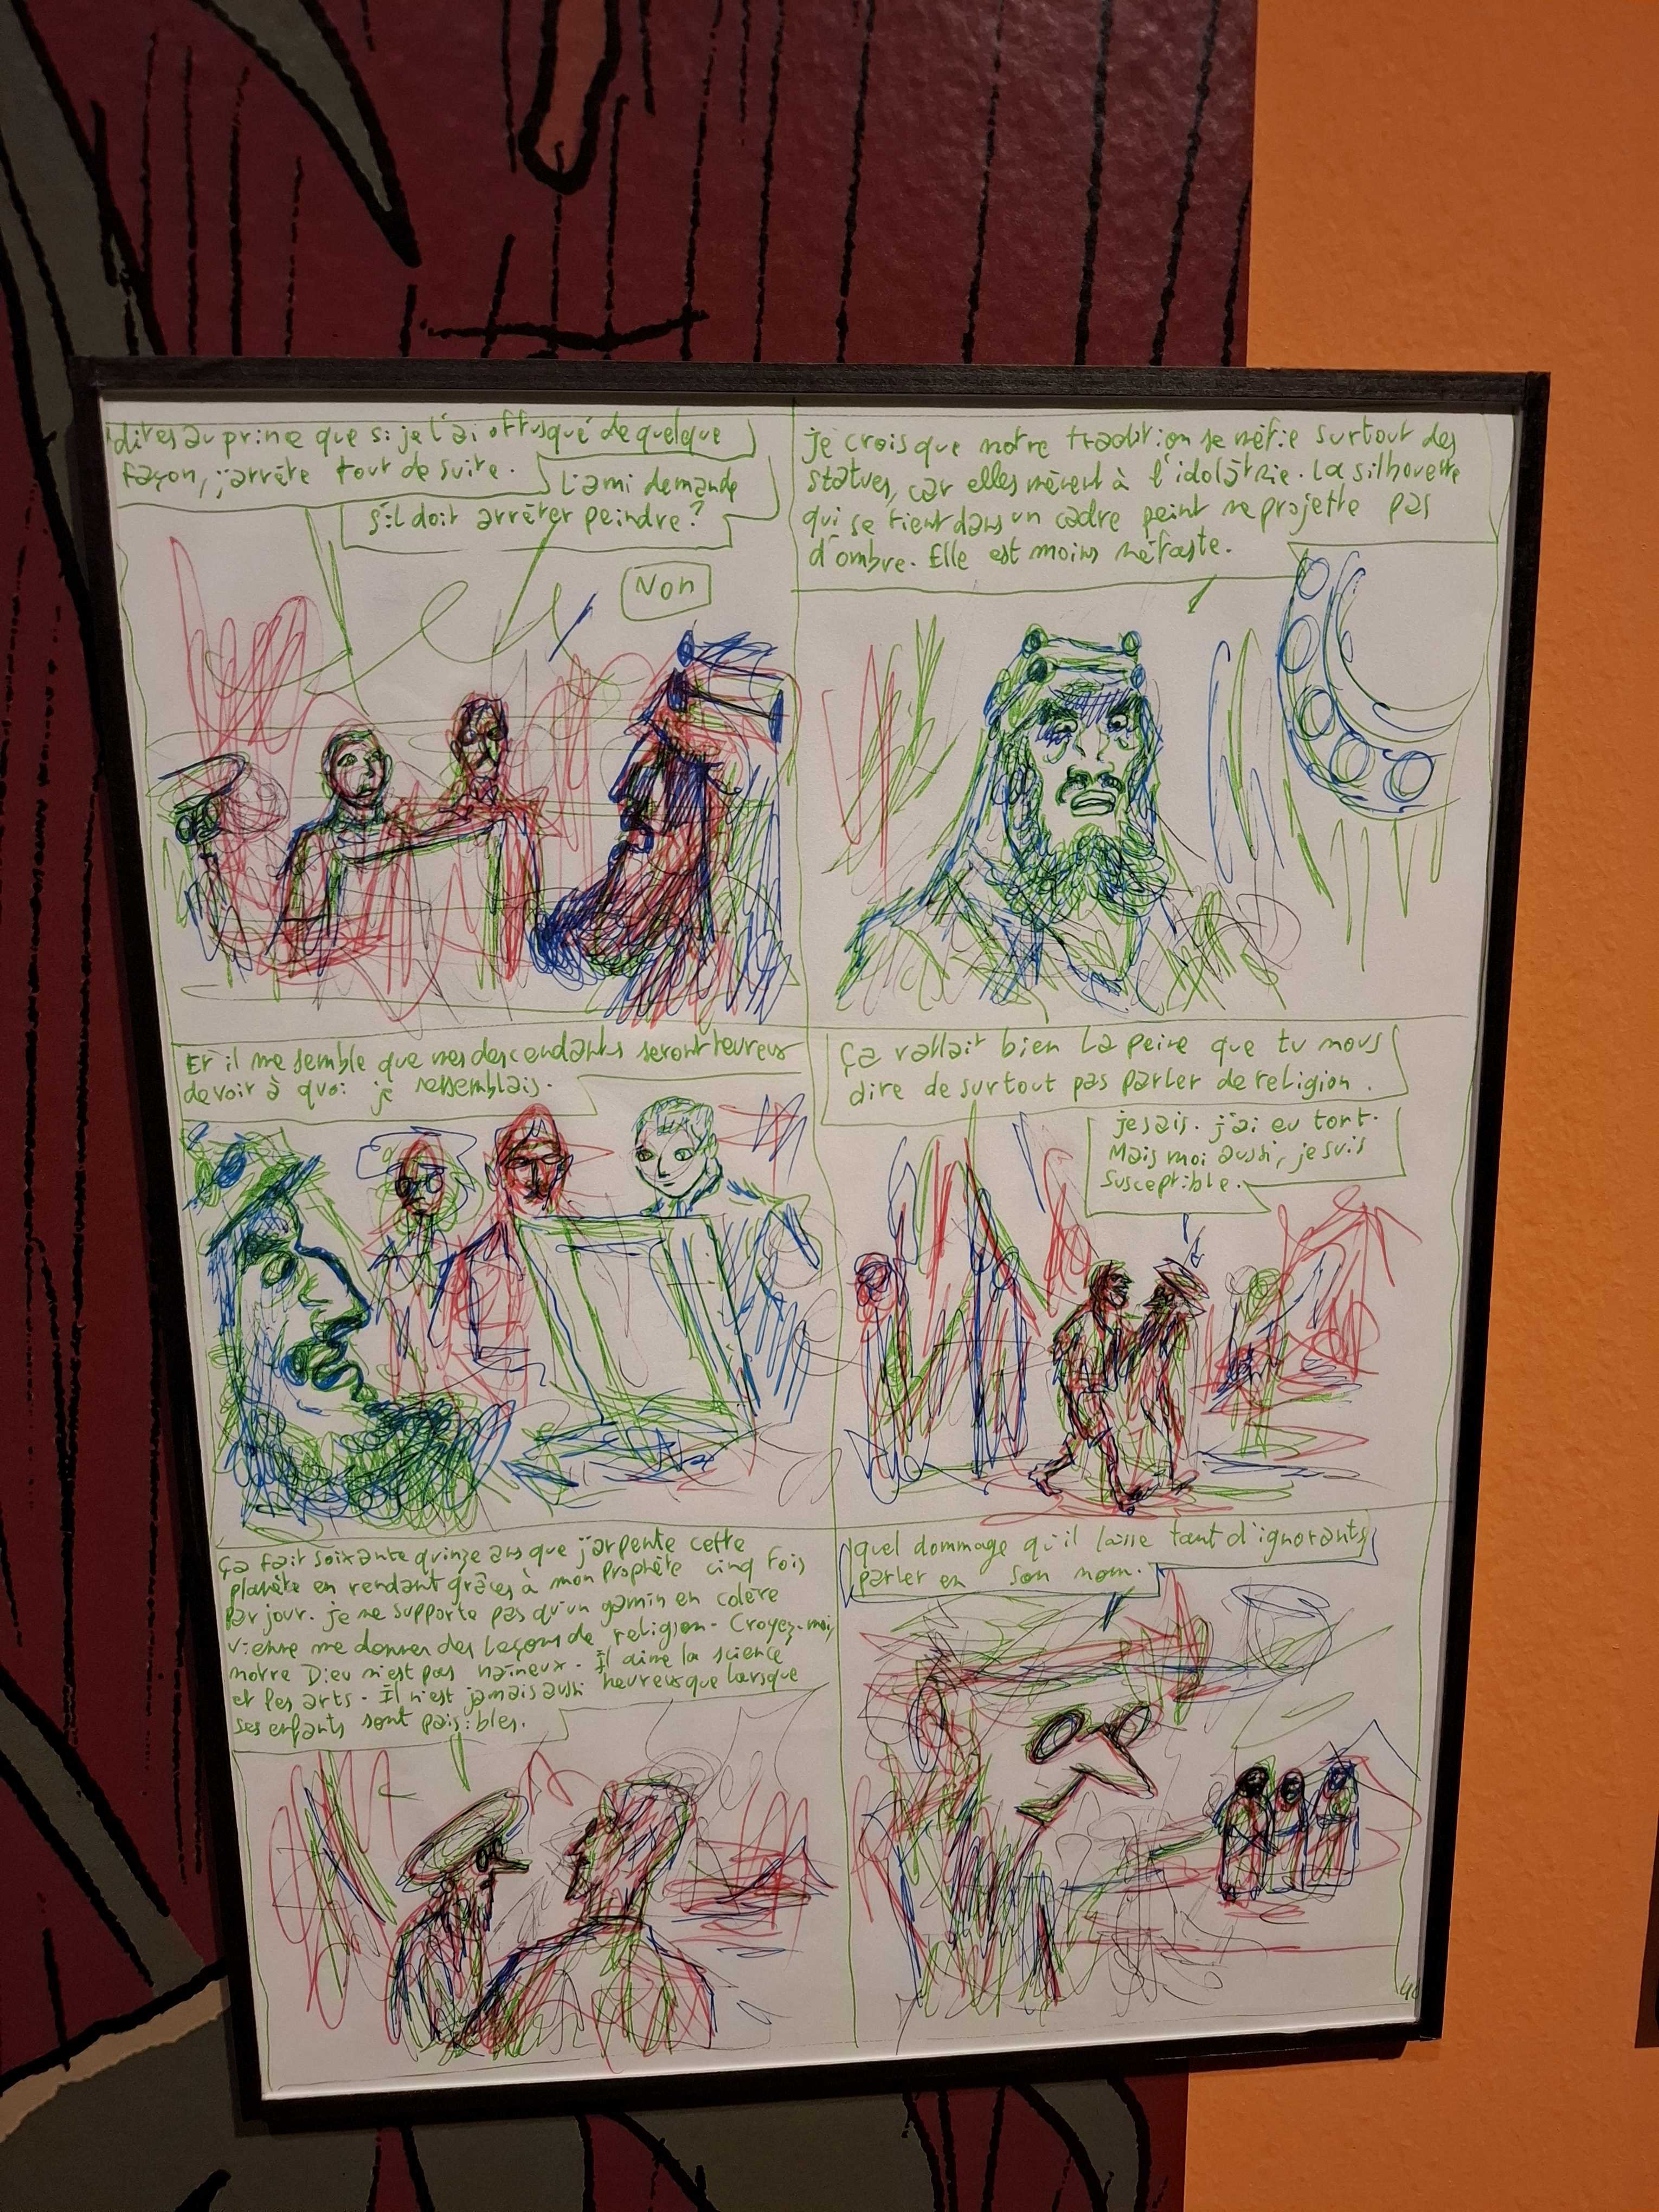 dites au prince que si je l'ai offusqué de quelque
façon, j'arrête tout de suite.
L'ami demande
s'il doit arrêter peindre?
Non
je crois que notre tradition se méfie surtout des
statues, car elles mènent à l'idolâtrie. La silhouette
qui se tient dans un cadre peint ne projette pas
d'ombre. Elle est moins néfaste.
Et il me semble que mes descendants seront heureux
de voir à quoi je ressemblais.
ça vallait bien la peine que tu nous
dire de surtout pas parler de religion.
je sais. j'ai eu tort.
Mais moi aussi, je suis
susceptible.
ça fait soixante quinze ans que j'arpente cette
planète en rendant grâces à mon Prophète cinq fois
par jour. je ne supporte pas qu'un gamin en colère
vienne me donner des leçons de religion. Croyez-moi,
notre Dieu n'est pas haineux. Il aime la science
et les arts. Il n'est jamais aussi heureux que lorsque
ses enfants sont paisibles.
quel dommage qu'il laisse tant d'ignorants
parler en son nom.